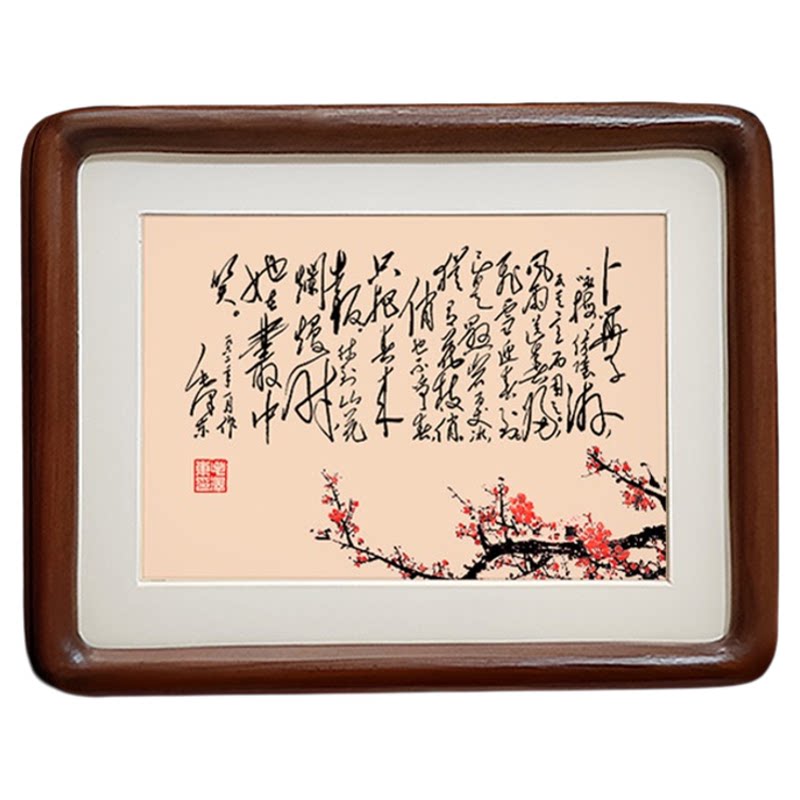 卜算子
咏梅
反其意而用之，
风雨送春归，
飞雪迎春到
已是悬崖百丈冰
犹有花枝俏。
俏也不争春
只把春来
报。待到山花
烂熳时
她在叢中
笑。
毛泽东